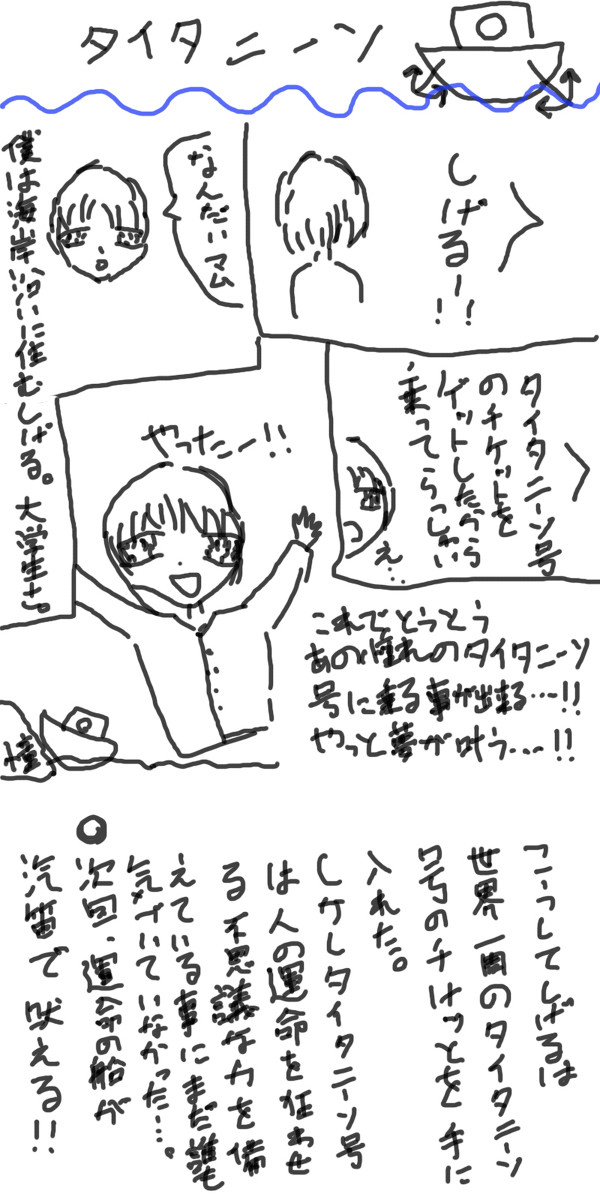 タイタニーン
しげるー!!
なんだいマム
僕は海岸沿いに住むしげる。大学生さ。
タイタニーン号
のチケットを
ゲットしたから
乗ってらっしゃい
え…
やったー!!
これでとうとう
あの憧れのタイタニーン
号に乗る事が出来る…!!
やっと夢が叶う…!!
憧
こうしてしげるは
世界一周のタイタニーン
号のチケットを手に
入れた。
しかしタイタニーン号
は人の運命を狂わせ
る不思議な力を備
えている事にまだ誰も
気づいていなかった…。
次回、運命の船が
汽笛で吠える!!